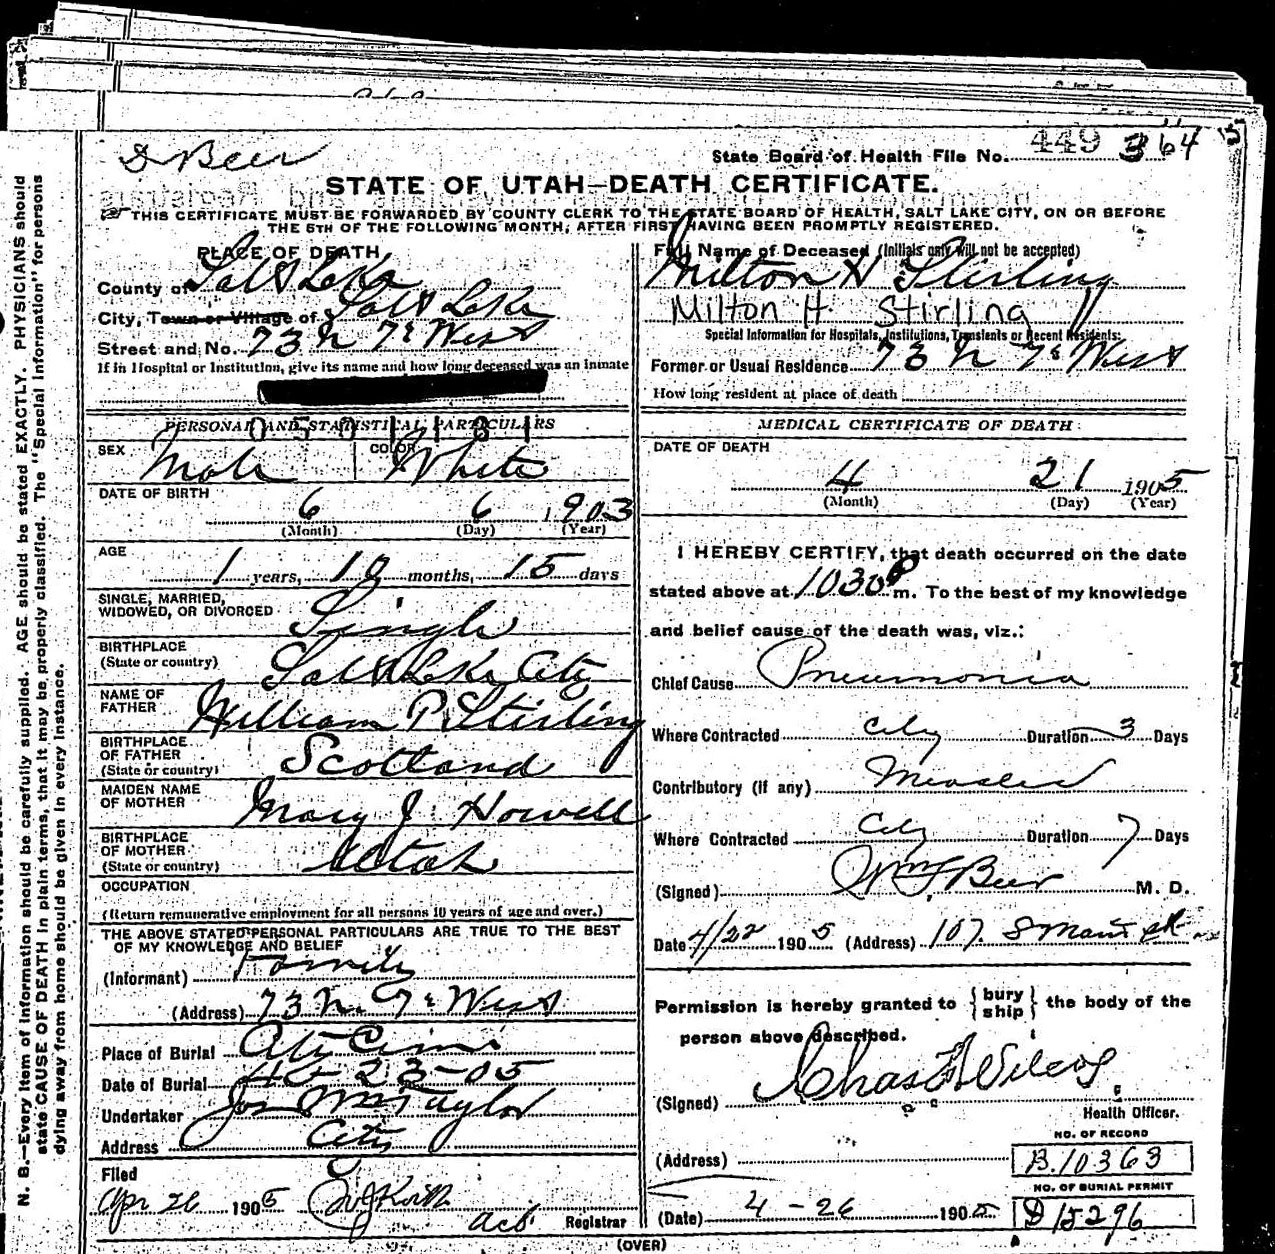 D Beer
State Board of Health File No. 449 364
STATE OF UTAH—DEATH CERTIFICATE.
THIS CERTIFICATE MUST BE FORWARDED BY COUNTY CLERK TO THE STATE BOARD OF HEALTH, SALT LAKE CITY, ON OR BEFORE
THE 5TH OF THE FOLLOWING MONTH, AFTER FIRST HAVING BEEN PROMPTLY REGISTERED.
PLACE OF DEATH
County of Salt Lake
City, Town or Village of Salt Lake
Street and No. 73 N 7th West
If in Hospital or Institution, give its name and how long deceased was an inmate
Full Name of Deceased (Initials only will not be accepted)
Milton H Stirling
Milton H. Stirling
Special Information for Hospitals, Institutions, Transients or Recent Residents:
Former or Usual Residence 73 N 7th West
How long resident at place of death
PERSONAL AND STATISTICAL PARTICULARS
SEX Male COLOR White
DATE OF BIRTH
6 6 1903
(Month) (Day) (Year)
AGE
1 years, 10 months, 15 days
SINGLE, MARRIED,
WIDOWED, OR DIVORCED Single
BIRTHPLACE
(State or country) Salt Lake City
NAME OF
FATHER William P. Stirling
BIRTHPLACE
OF FATHER
(State or country) Scotland
MAIDEN NAME
OF MOTHER Mary J. Howell
BIRTHPLACE
OF MOTHER
(State or country) Utah
OCCUPATION
(Return remunerative employment for all persons 10 years of age and over.)
THE ABOVE STATED PERSONAL PARTICULARS ARE TRUE TO THE BEST
OF MY KNOWLEDGE AND BELIEF
(Informant) Family
(Address) 73 N. 7th West
Place of Burial City Cem
Date of Burial 4-23-05
Undertaker Jos Wm Taylor
Address City
Filed
Apr 26 1905
act Registrar
MEDICAL CERTIFICATE OF DEATH
DATE OF DEATH
4 21 1905
(Month) (Day) (Year)
I HEREBY CERTIFY, that death occurred on the date
stated above at 1030 P m. To the best of my knowledge
and belief cause of the death was, viz.:
Chief Cause Pneumonia
Where Contracted City Duration 3 Days
Contributory (if any) Measles
Where Contracted City Duration 7 Days
(Signed) Wm F Beer M. D.
Date 4/22 1905 (Address) 107 S Main St
Permission is hereby granted to {bury
ship} the body of the
person above described.
(Signed) Chas F Wilcox
Health Officer.
(Address)
NO. OF RECORD
B.10363
NO. OF BURIAL PERMIT
D 15296
(Date) 4 - 26 1905
(OVER)
N. B.—Every item of information should be carefully supplied. AGE should be stated EXACTLY. PHYSICIANS should
state CAUSE OF DEATH in plain terms, that it may be properly classified. The "Special Information" for persons
dying away from home should be given in every instance.